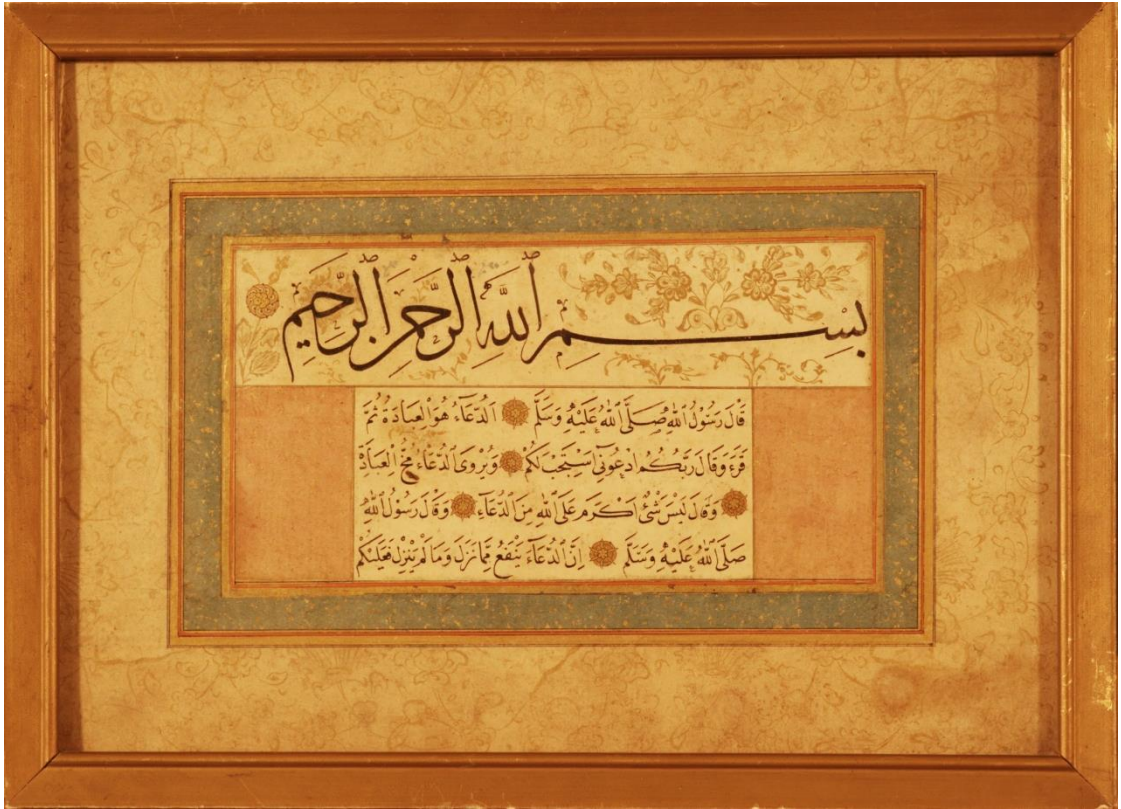 بِسْمِ ٱللَّهِ ٱلرَّحْمَٰنِ ٱلرَّحِيمِ
قَالَ رَسُولُ ٱللَّهِ صَلَّى ٱللَّهُ عَلَيْهِ وَسَلَّمَ ۞ اَلدُّعَاءُ هُوَ الْعِبَادَةُ ثُمَّ
قَرَءَ وَقَالَ رَبُّكُمُ ادْعُونِٓى اَسْتَجِبْ لَكُمْ ۞ وَيُرْوَى ٱلدُّعَاءُ مُخُّ الْعِبَادَةِ
۞ وَقَالَ لَيْسَ شَئٌ اَكْرَمَ عَلَى ٱللَّهِ مِنَ ٱلدُّعَآءِ ۞ وَقَالَ رَسُولُ ٱللَّهِ
صَلَّى ٱللَّهُ عَلَيْهِ وَسَلَّمَ ۞ اِنَّ ٱلدُّعَآءَ يَنْفَعُ مِمَّا نَزَلَ وَمَا لَمْ يَنْزِلْ فَعَلَيْكُمْ